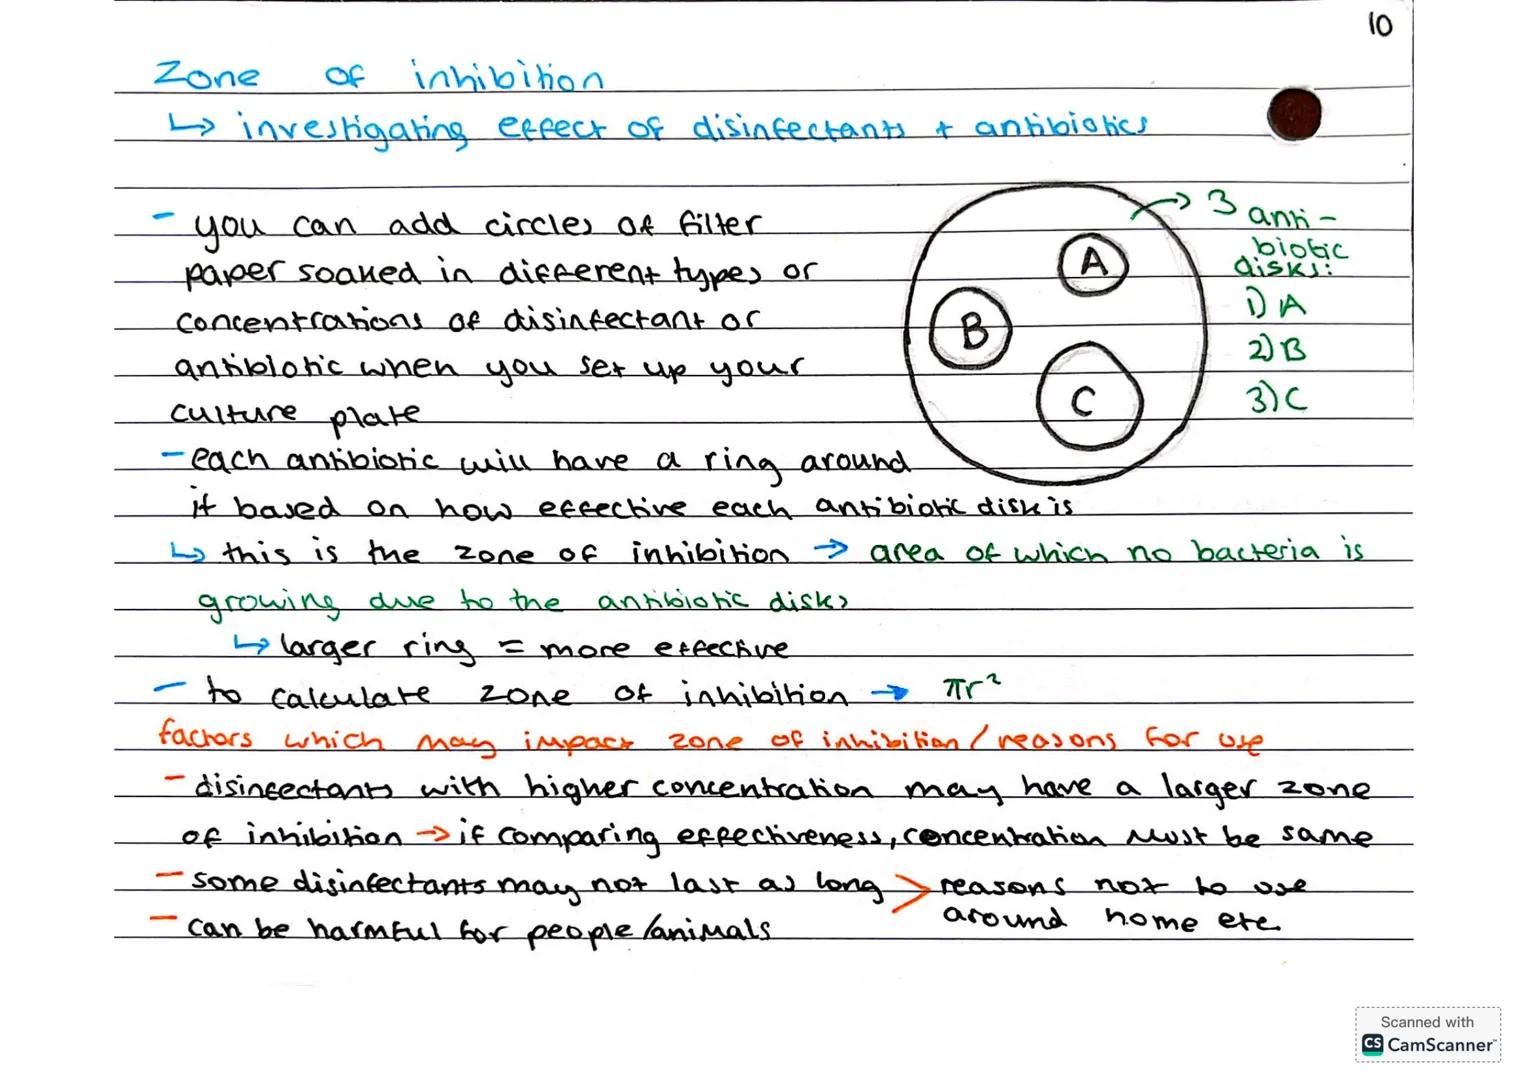 10
Zone of inhibition
↳ investigating effect of disinfectants + antibiotics
- you can add circles of filter
paper soaked in different types or
concentrations of disinfectant or
antibiotic when you set up your
culture plate
A
B
C
→ 3 anti-
biotic
disks:
1) A
2) B
3) C
- each antibiotic will have a ring around
it based on how effective each antibiotic disk is
↳ this is the zone of inhibition → area of which no bacteria is
growing due to the antibiotic disks
↳ larger ring = more effective
- to calculate zone of inhibition → πr²
factors which may impact zone of inhibition / reasons for use
- disinfectants with higher concentration may have a larger zone
of inhibition → if comparing effectiveness, concentration must be same
- some disinfectants may not last as long > reasons not to use
- can be harmful for people/animals around home etc.
Scanned with
CS CamScanner